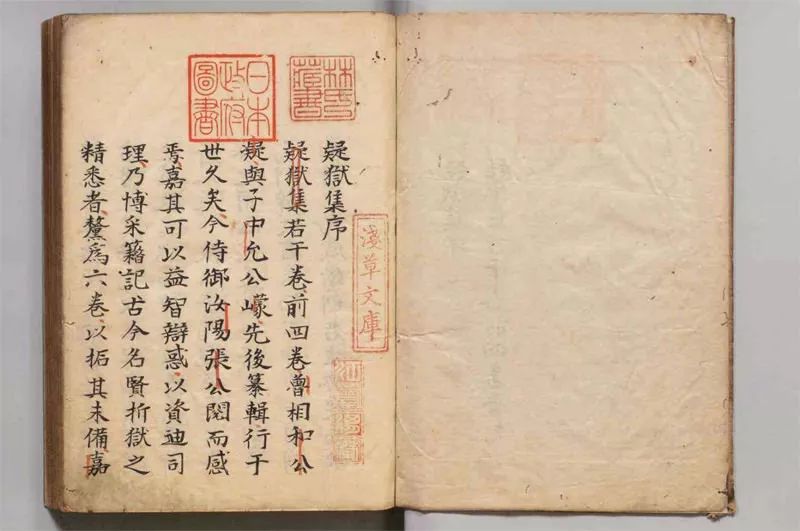 林氏藏書
日本政府圖書
淺草文庫
江雲渭樹
疑獄集序
疑獄集若干卷前四卷曾相和公
凝與子中允公㠓先後纂輯行于
世久矣今侍御汝陽張公閱而感
焉嘉其可以益智辯惑以資迪司
理乃博采籍記古今名賢折獄之
精悉者釐爲六卷以拓其未備嘉